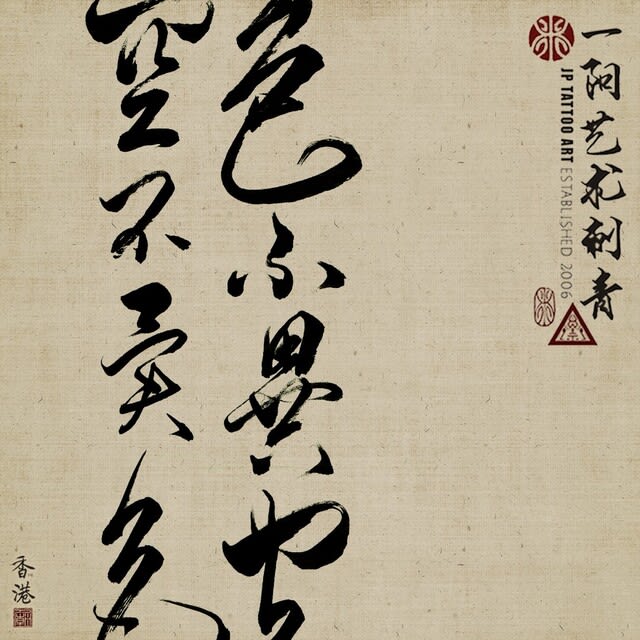 一阿艺术刺青
JP TATTOO ART ESTABLISHED 2006
色不異空
空不異色
香港